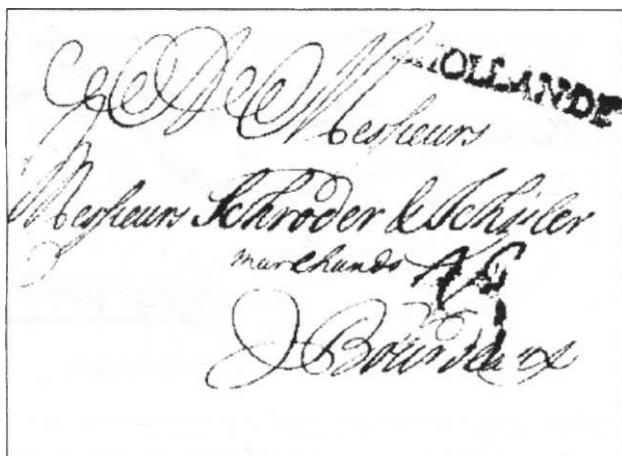 HOLLANDE
Messieurs
Messieurs Schröder & Schÿler
marchands
Bourdeaux